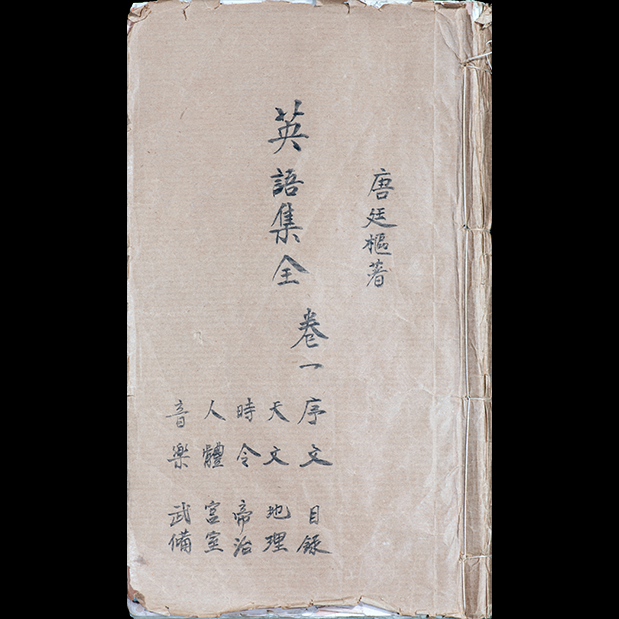 唐廷樞著
英語集全
卷一
序文 目錄
天文 地理
時令 帝治
人體 宮室
音樂 武備